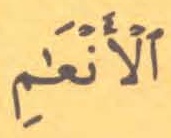 ٱلْأَنْعَٰمِ